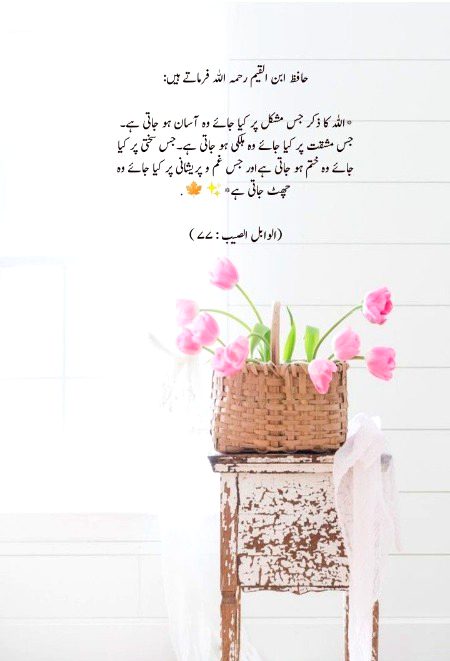 حافظ ابن القیم رحمہ اللہ فرماتے ہیں:
*اللہ کا ذکر جس مشکل پر کیا جائے وہ آسان ہو جاتی ہے۔
جس مشقت پر کیا جائے وہ ہلکی ہو جاتی ہے۔جس سختی پر کیا
جائے وہ ختم ہو جاتی ہےاور جس غم و پریشانی پر کیا جائے وہ
چھٹ جاتی ہے* ✨🍁 .
(الوابل الصیب : ۷۷)